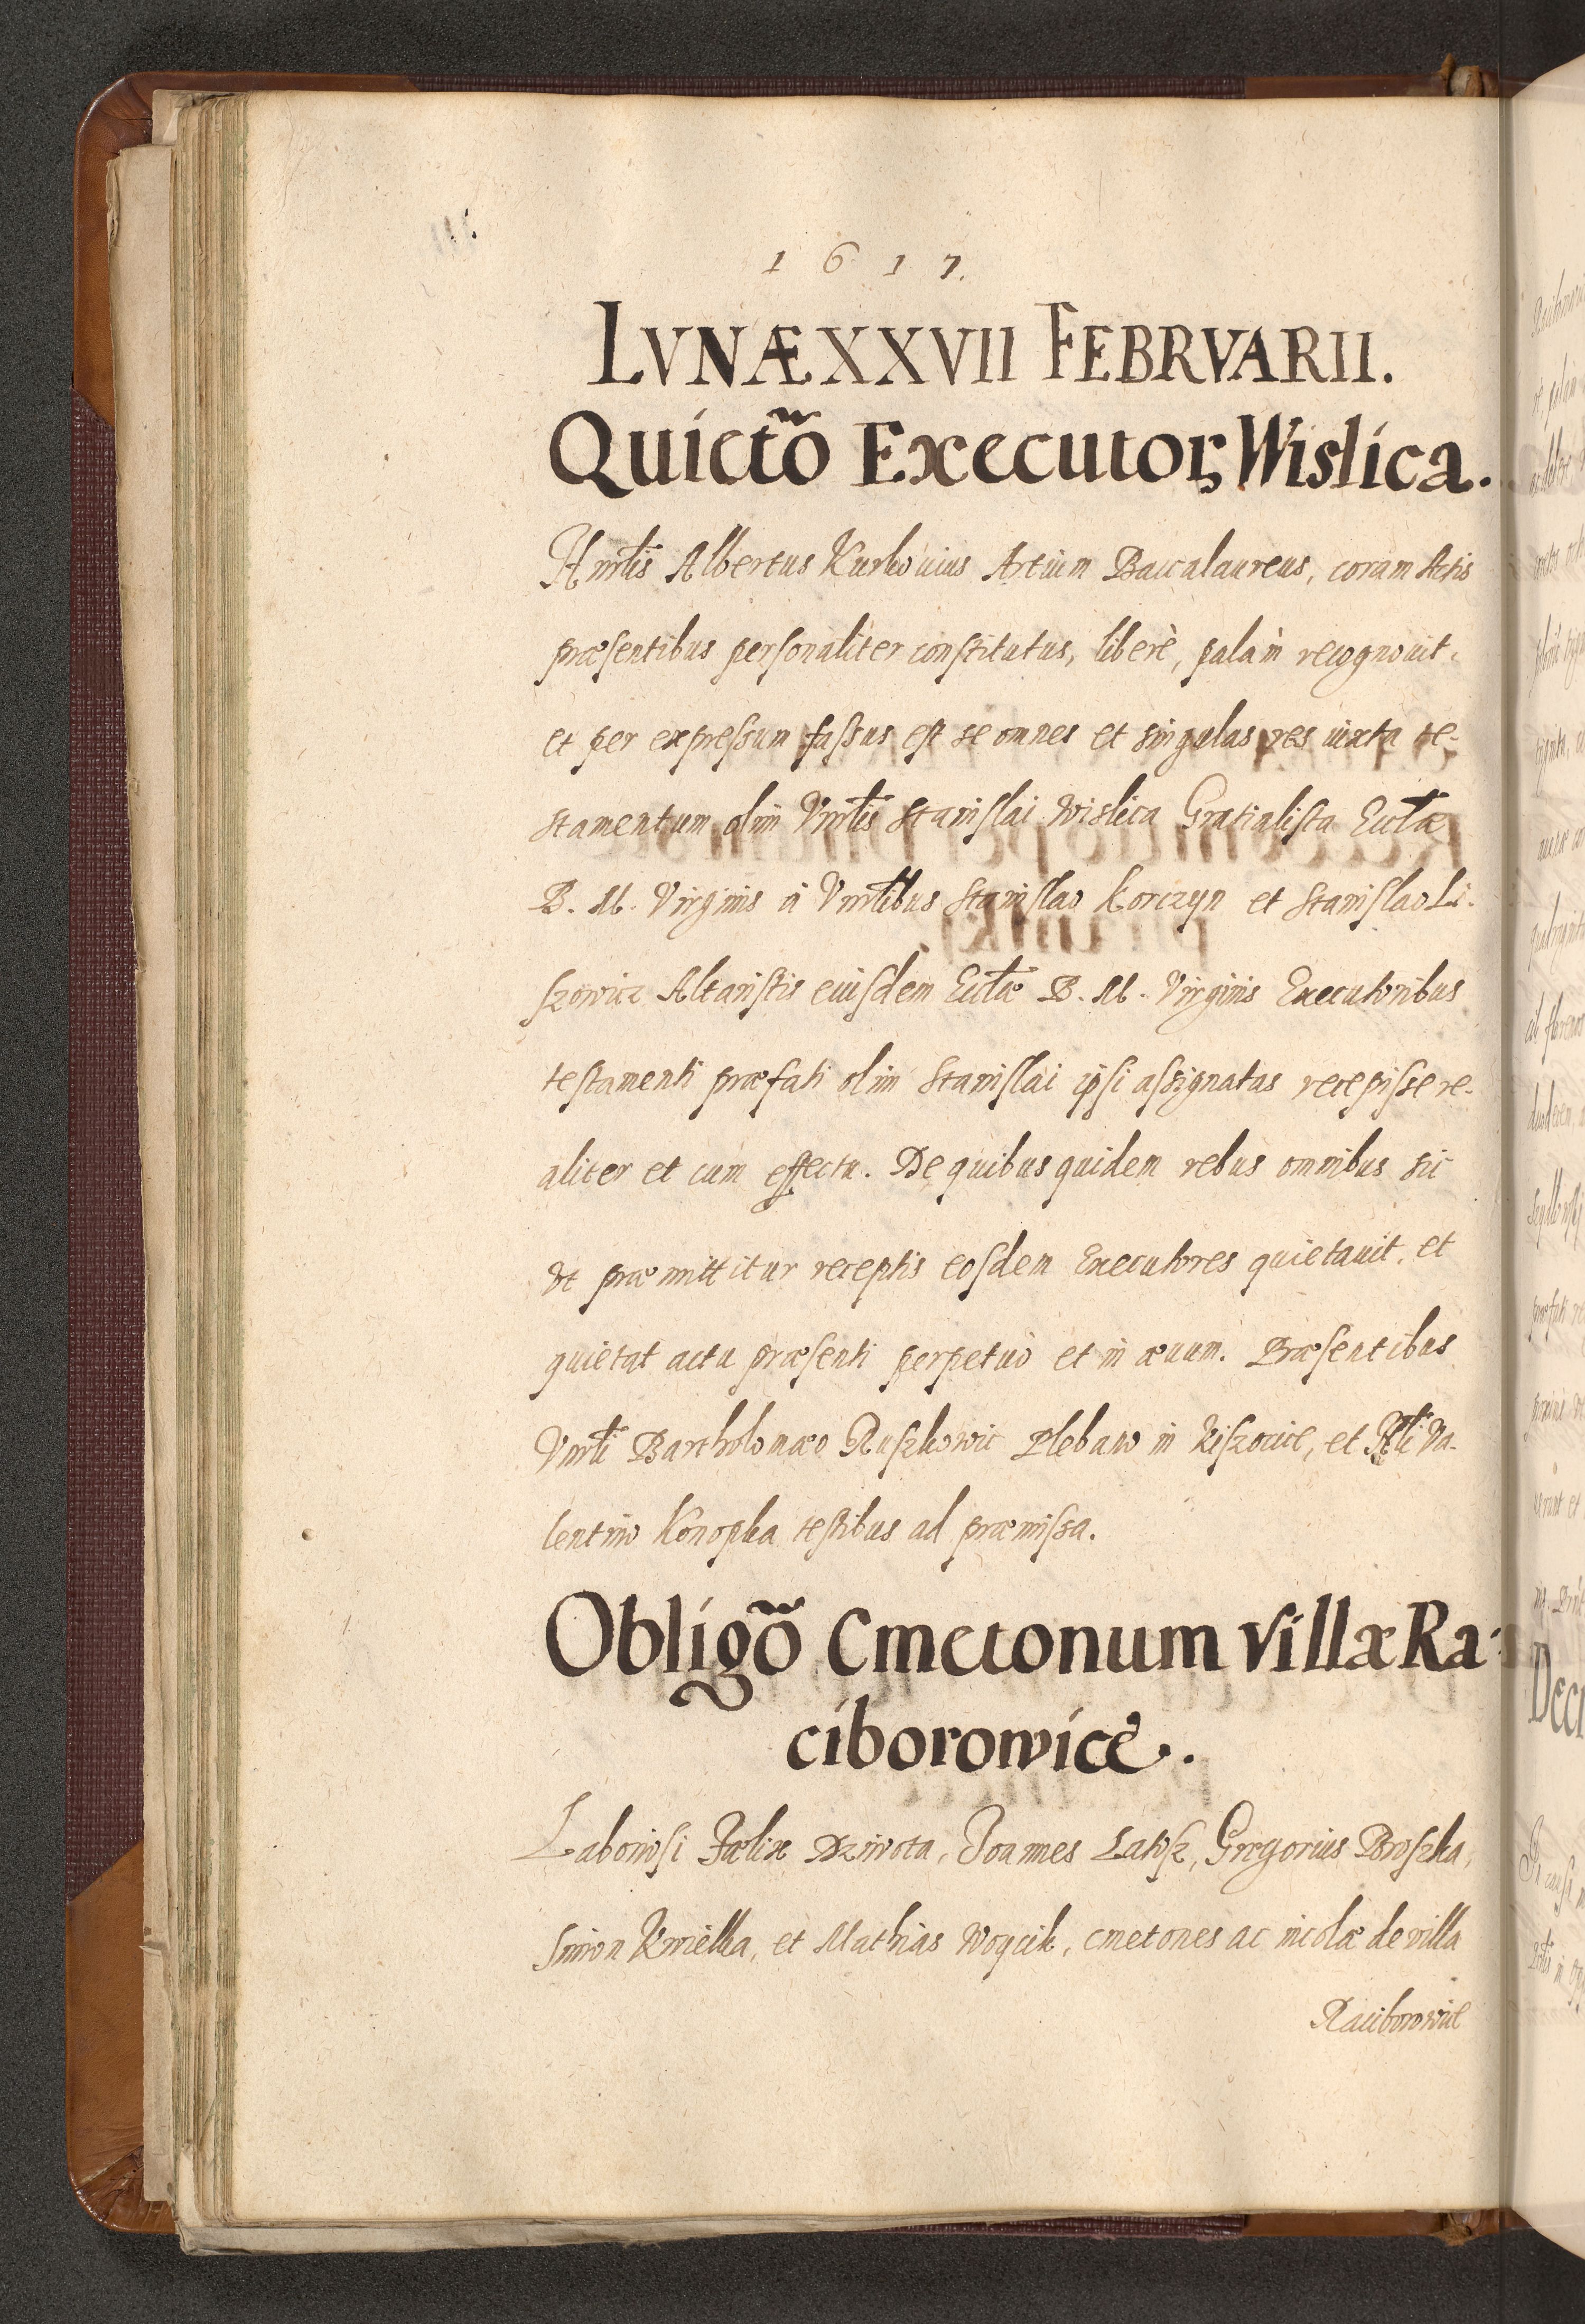 1617.
LVNÆ XXVII FEBRVARII.
Quictõ Executorꝝ Wislica.
Albertus Kurkouius Artium Baccalaureus, coram Actis
præsentibus personaliter constitutus, liberè, palàm recognouit,
et per expressum fassus est se omnes et singulas res iuxta te-
stamentum olim Vnrlis Stanislai Wislica Gratialista Eccłæ
B. M. Virginis à Vnrlibus Stanislao Korczyn et Stanislao Li-
szowicz Altaristis eiusdem Eccłæ B. M. Virginis Executoribus
testamenti præfati olim Stanislai ipsi assignatas recepisse re-
aliter et cum effectu. De quibus quidem rebus omnibus sic
vt præmittitur receptis eosdem Executores quietauit, et
quietat actu præsenti perpetuò et in æuum. Præsentibus
Vnrli Bartholomæo Ruszkowic Plebano in et Va-
lentino Konopka testibus ad præmissa.
Obligõ Cmetonum villæ Ra-
ciborowice.
Laboriosi Fælix Dziwota, Joannes Latosz, Gregorius Broszka,
Simon Kwielka, et Mathias Woycik, cmetones ac incolæ de villa
Raciborowice